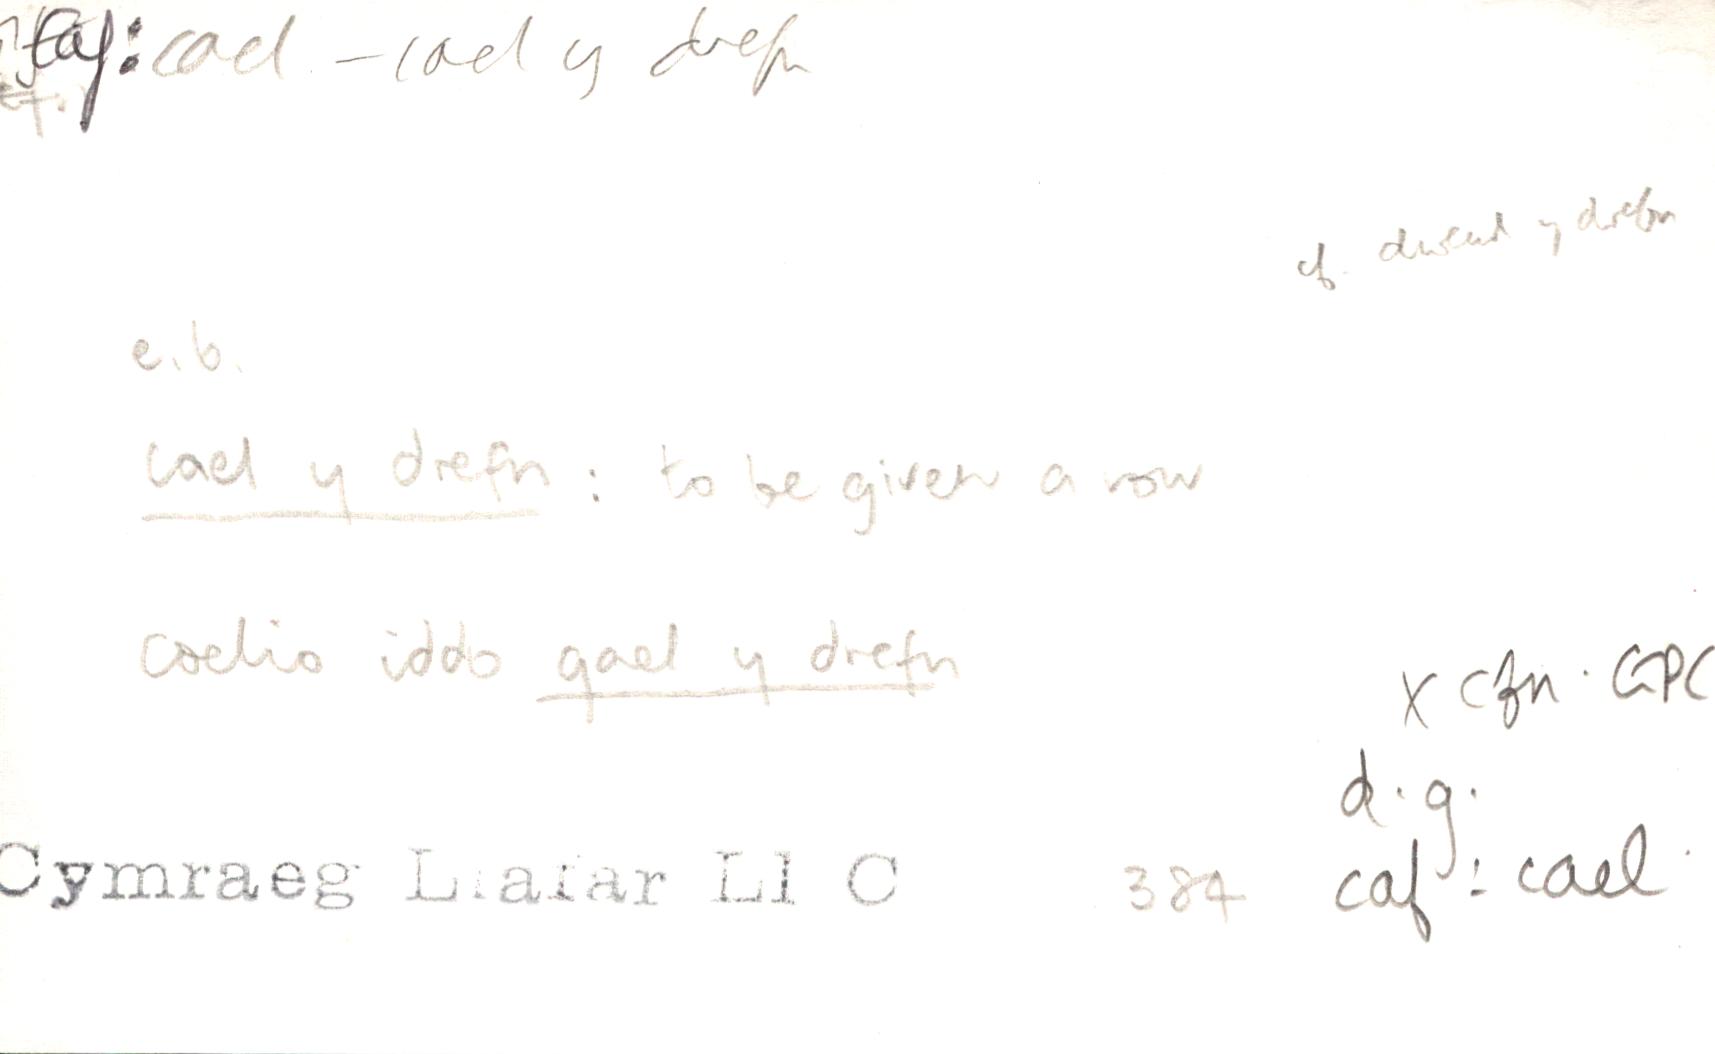 caf: cael - cael y drefn
cf. dweud y drefn
e.b.
cael y drefn : to be given a row
coelio iddo gael y drefn
x cfn. GPC
d.g.
Cymraeg Llafar Ll C 384 caf : cael